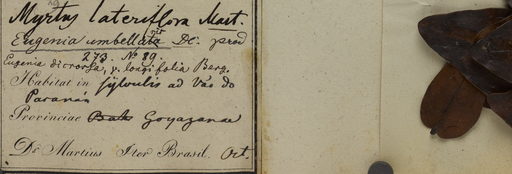 Myrtus lateriflora Mart.
Eugenia umbellata DC. prod
273. No 89.
Eugenia dicrorsa, γ. longifolia Berg.
Habitat in sylvulis ad Vão do
Paranán
Provinciae Bah Goyazanae
Dr Martius Iter Brasil. Oct.